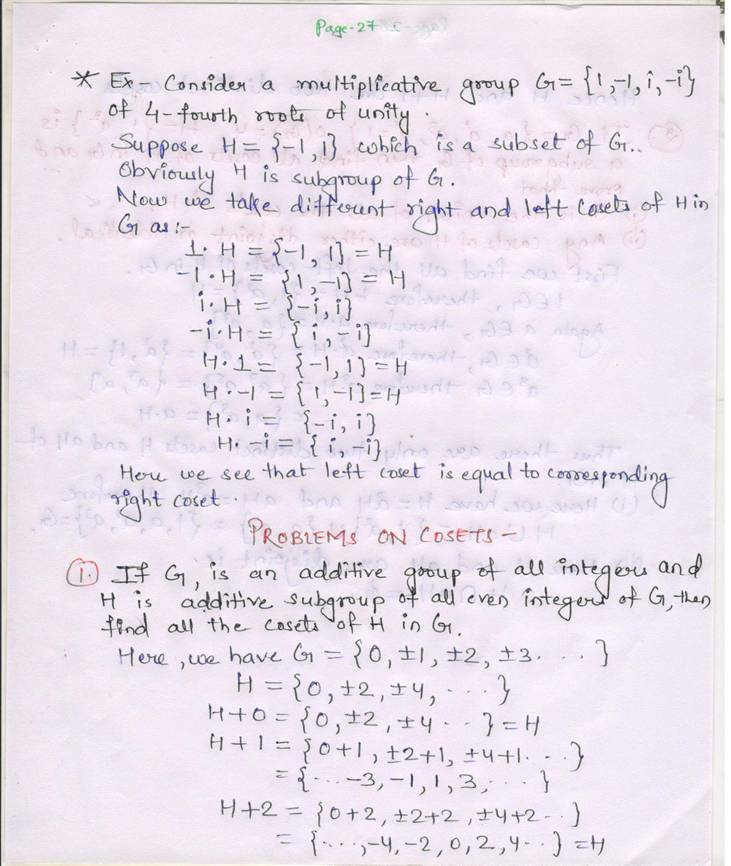 Page-27
* Ex- Consider a multiplicative group G = {1, -1, i, -i}
of 4-fourth roots of unity.
Suppose H = {-1, 1} which is a subset of G..
Obviously H is subgroup of G.
Now we take different right and left cosets of H in
G as:-
1·H = {-1, 1} = H
-1·H = {1, -1} = H
i·H = {-i, i}
-i·H = {i, -i}
H·1 = {-1, 1} = H
H·-1 = {1, -1} = H
H·i = {-i, i}
H·-i = {i, -i}
Here we see that left coset is equal to corresponding
right coset.
PROBLEMS ON COSETS-
1. If G, is an additive group of all integers and
H is additive subgroup of all even integers of G, then
find all the cosets of H in G.
Here, we have G = {0, ±1, ±2, ±3. . . .}
H = {0, ±2, ±4, . . .}
H+0 = {0, ±2, ±4 . . } = H
H+1 = {0+1, ±2+1, ±4+1. . .}
= {... -3, -1, 1, 3, . . .}
H+2 = {0+2, ±2+2, ±4+2 . .}
= {...., -4, -2, 0, 2, 4 . .} = H